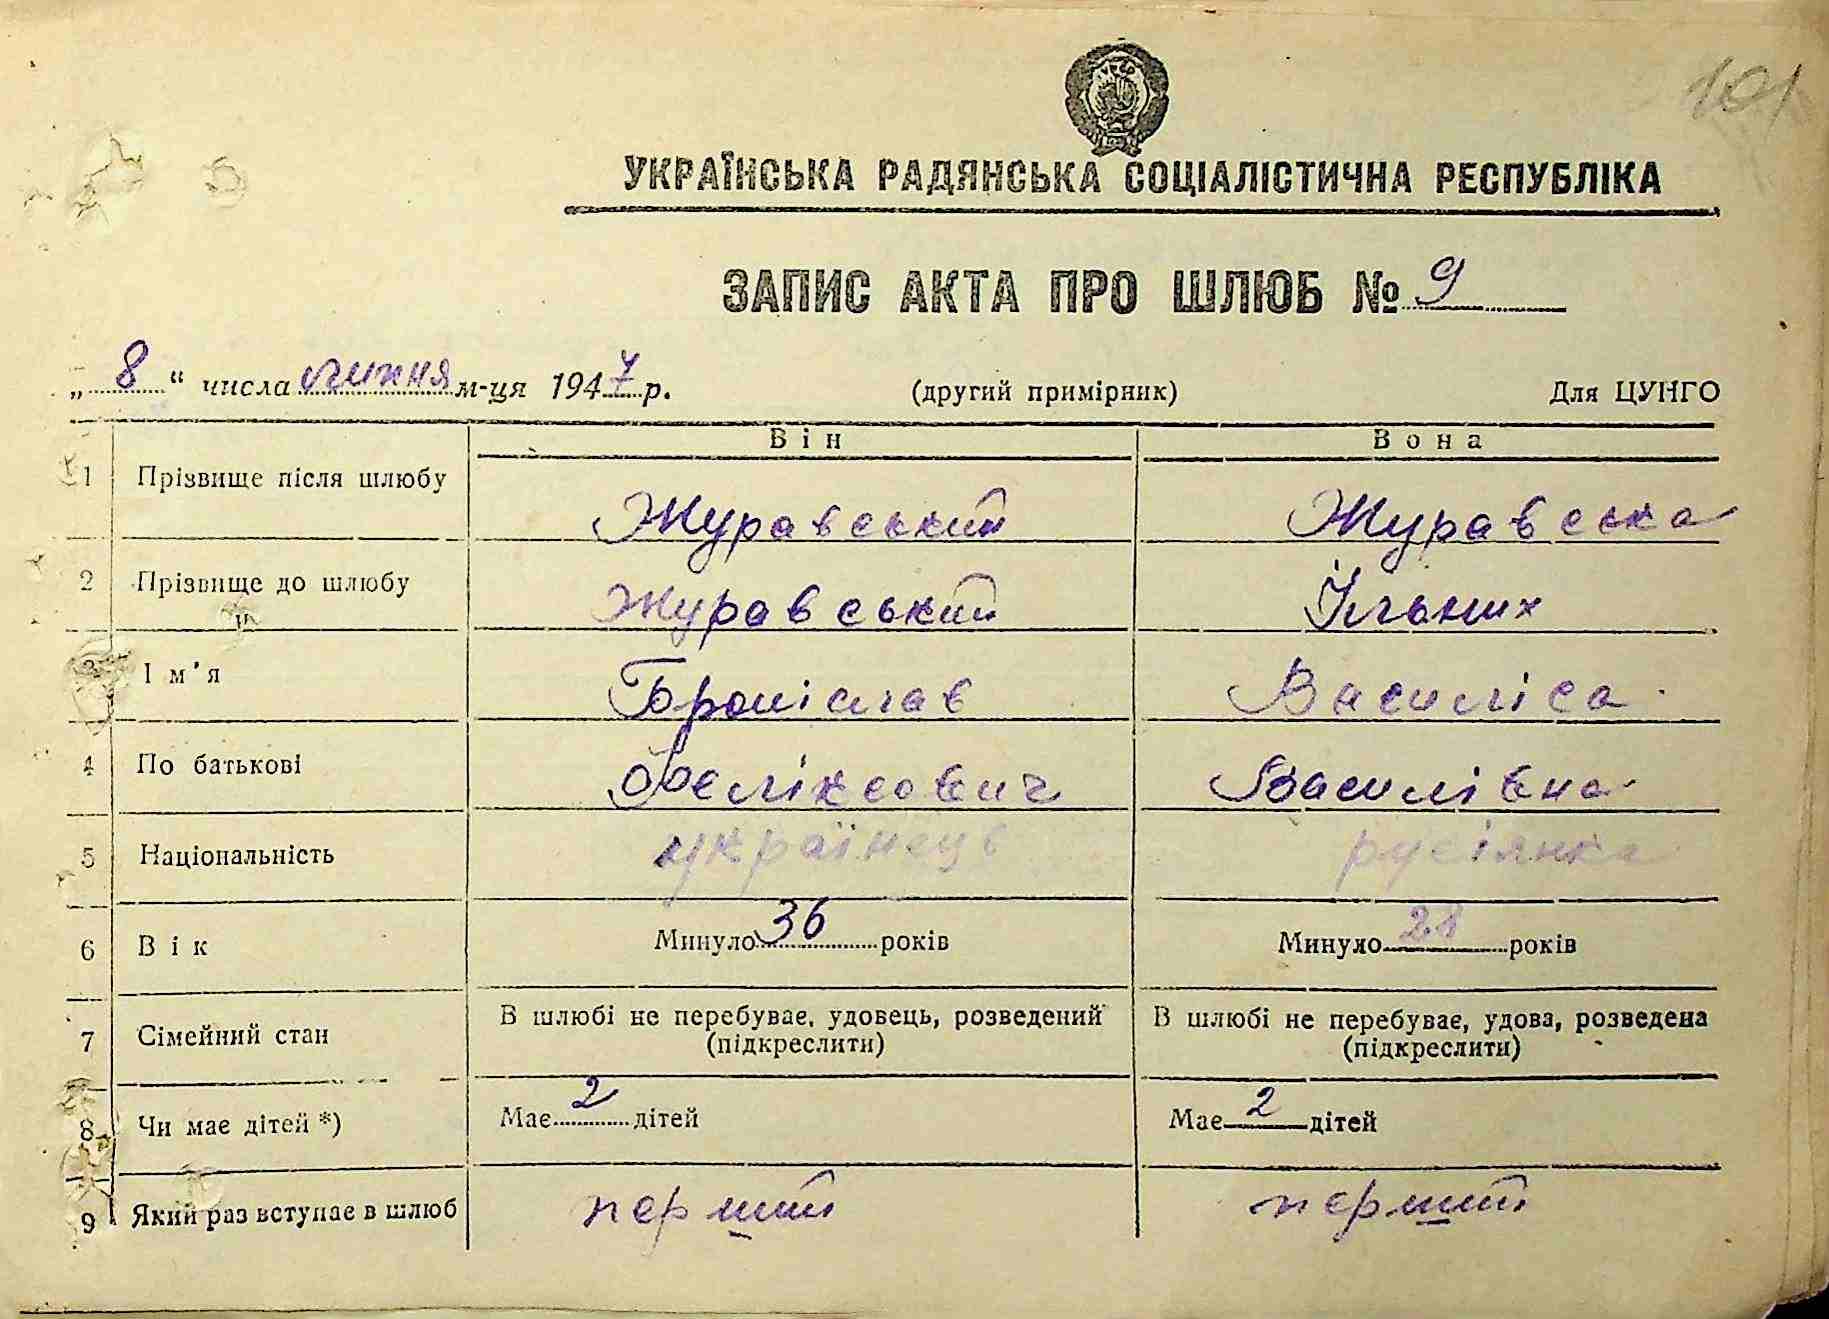 101
УКРАЇНСЬКА РАДЯНСЬКА СОЦІАЛІСТИЧНА РЕСПУБЛІКА
ЗАПИС АКТА ПРО ШЛЮБ № 9
„ 8 “ числа липня м-ця 1947 р. (другий примірник) Для ЦУНГО
Він Вона
1 Прізвище після шлюбу Журавський Журавська
2 Прізвище до шлюбу Журавський Ільних
3 Ім'я Броніслав Василіса
4 По батькові Феліксович Василівна
5 Національність українець русіянка
6 Вік Минуло 36 років Минуло 28 років
7 Сімейний стан В шлюбі не перебуває, удовець, розведений В шлюбі не перебуває, удова, розведена
(підкреслити) (підкреслити)
8 Чи має дітей *) Має 2 дітей Має 2 дітей
9 Який раз вступає в шлюб перший перший